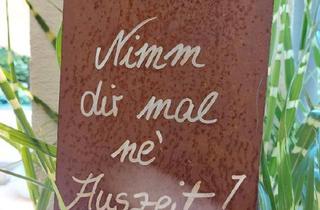 Nimm
dir mal
ne`
Auszeit!